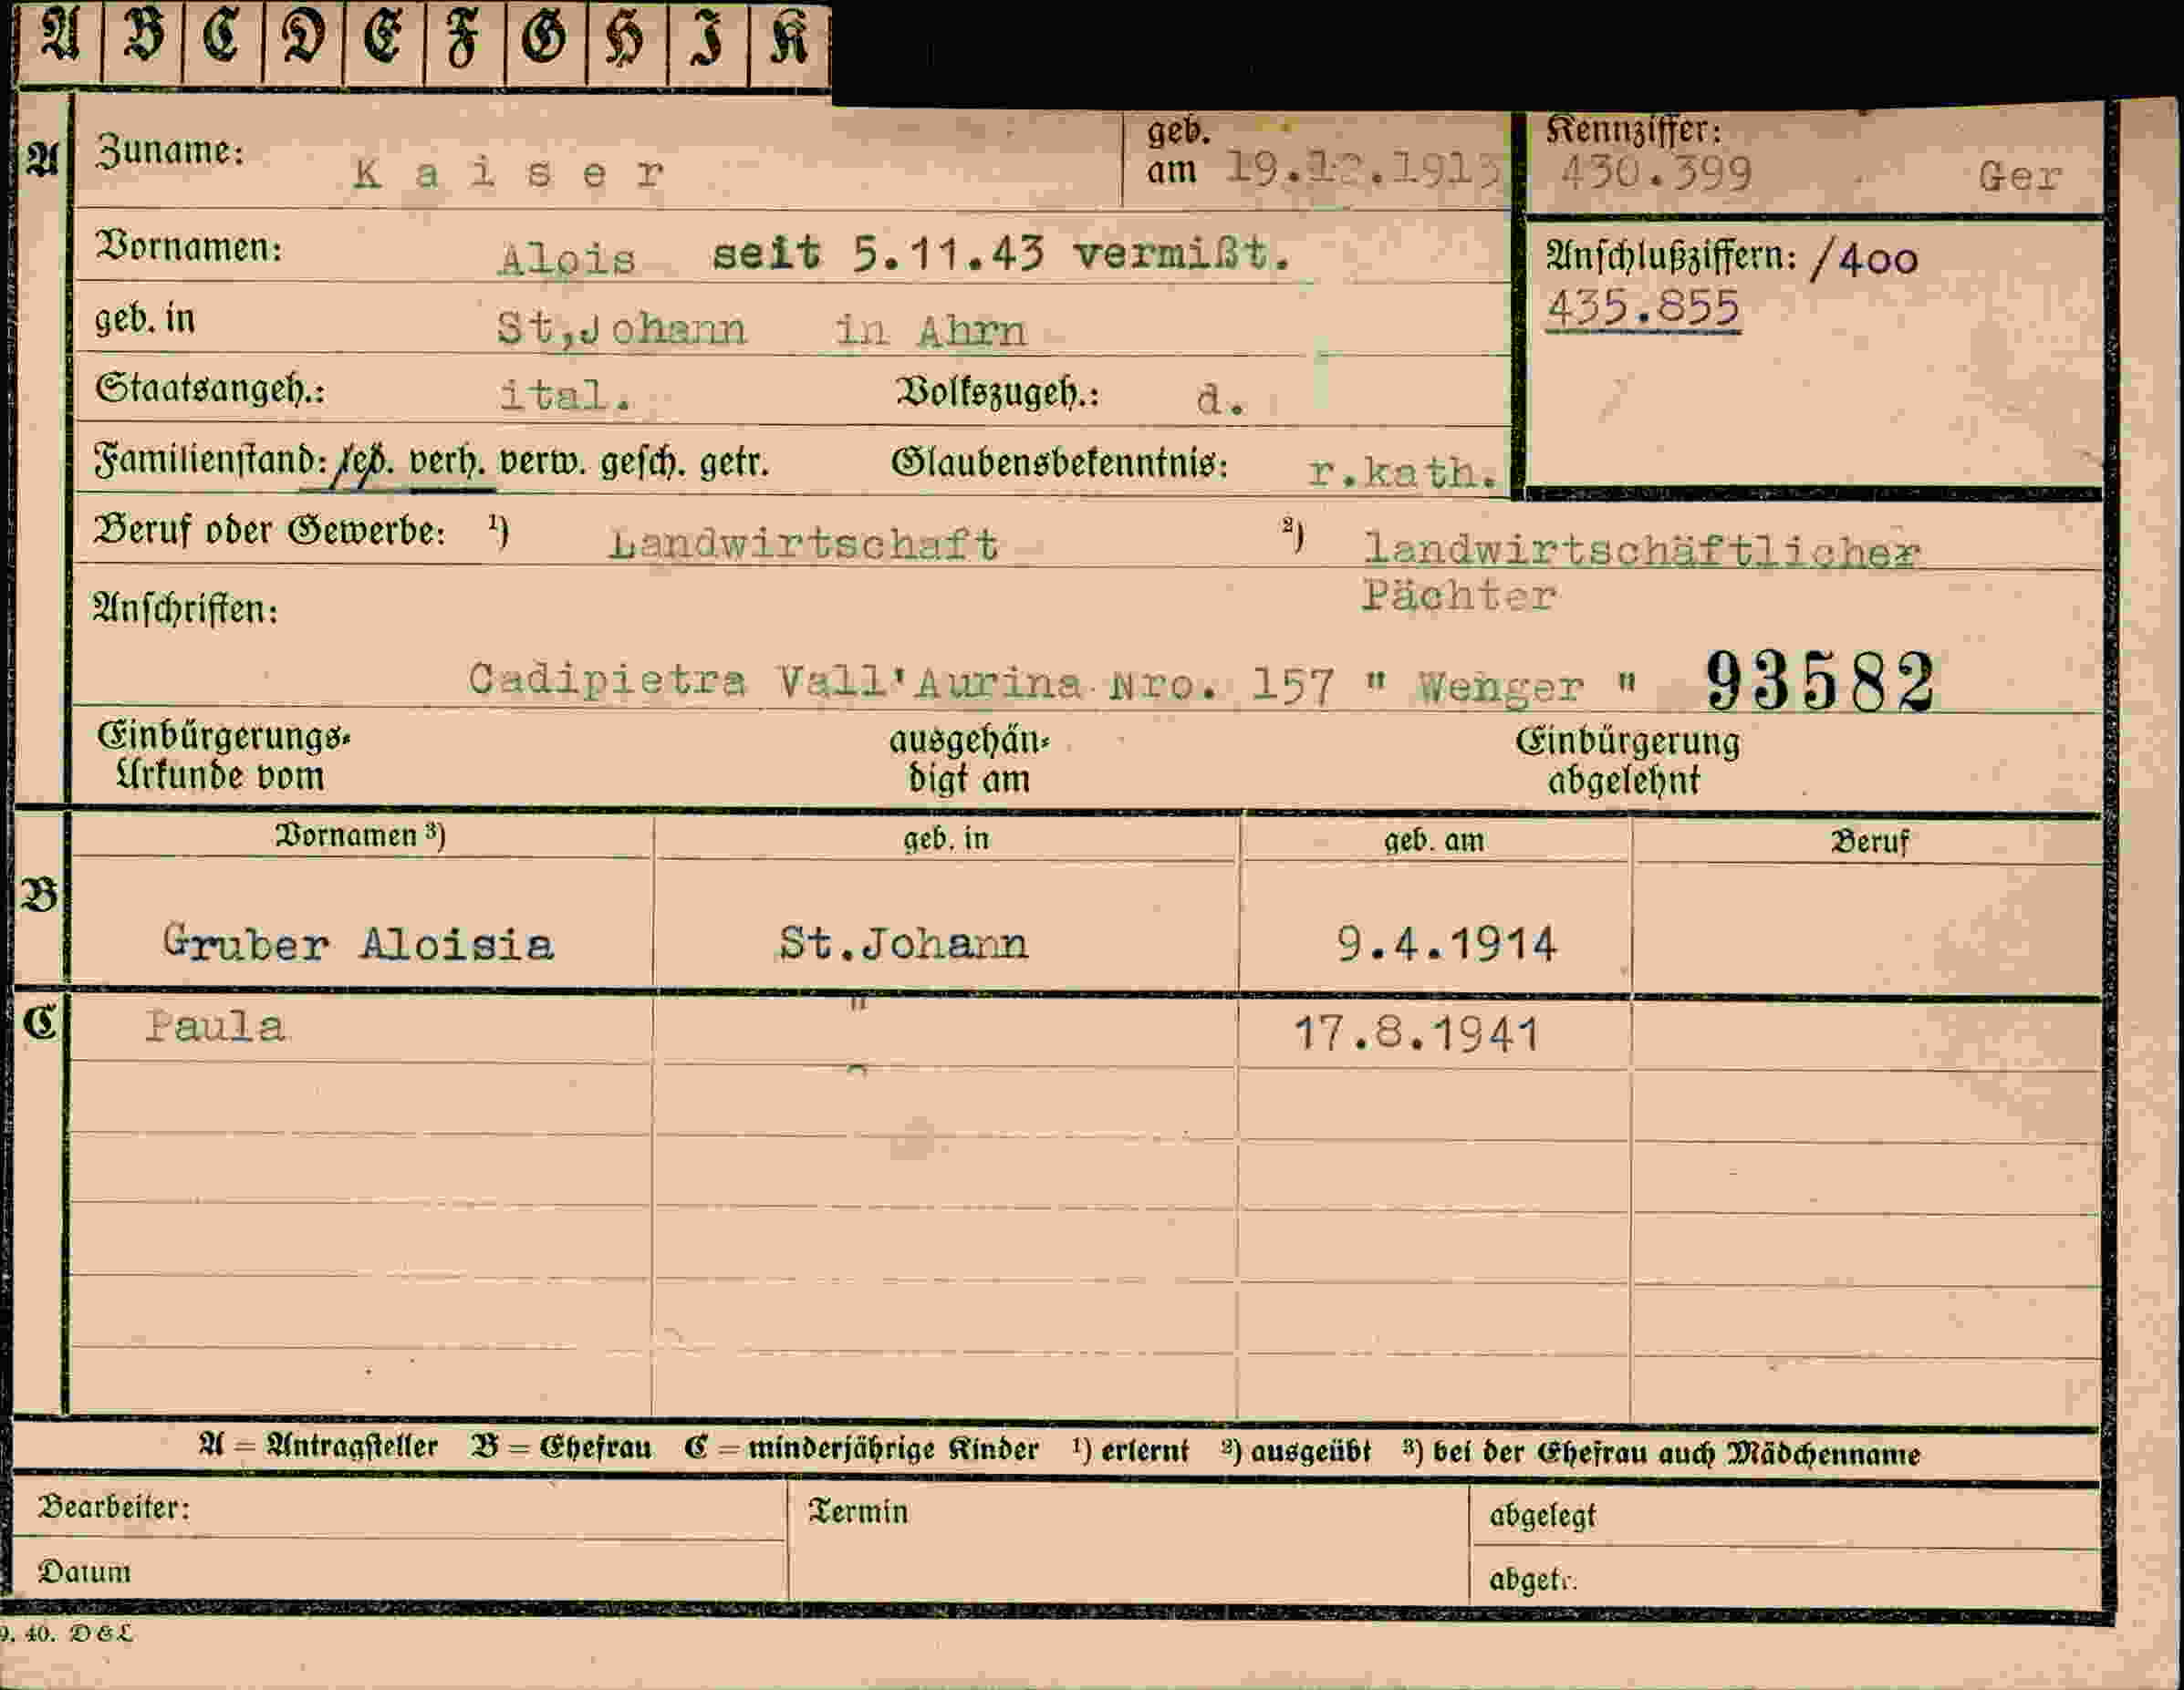 A B C D E F G H I K
A Zuname: Kaiser geb. am 19.12.1913 Kennziffer: 430.399 Ger
Vornamen: Alois seit 5.11.43 vermißt. Anschlußziffern: /400
435.855
geb. in St,Johann in Ahrn
Staatsangeh.: ital. Volkszugeh.: d.
Familienstand: led. verh. verw. gesch. getr. Glaubensbekenntnis: r.kath.
Beruf oder Gewerbe: ¹) Landwirtschaft ²) landwirtschäftlicher
Pächter
Anschriften:
Cadipietra Vall'Aurina Nro. 157 " Wenger " 93582
Einbürgerungs- ausgehän- Einbürgerung
Urkunde vom digt am abgelehnt
Vornamen ³) geb. in geb. am Beruf
B
Gruber Aloisia St.Johann 9.4.1914
C Paula " 17.8.1941
A = Antragsteller B = Ehefrau C = minderjährige Kinder ¹) erlernt ²) ausgeübt ³) bei der Ehefrau auch Mädchenname
Bearbeiter: Termin abgelegt
Datum abgetr.
9. 40. D&L